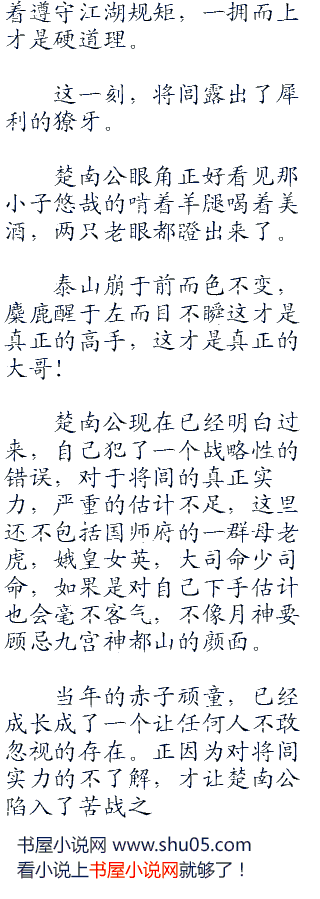 着遵守江湖规矩，一拥而上
才是硬道理。
这一刻，将闾露出了犀
利的獠牙。
楚南公眼角正好看见那
小子悠哉的啃着羊腿喝着美
酒，两只老眼都瞪出来了。
泰山崩于前而色不变，
麋鹿醒于左而目不瞬这才是
真正的高手，这才是真正的
大哥！
楚南公现在已经明白过
来，自己犯了一个战略性的
错误，对于将闾的真正实
力，严重的估计不足，这里
还不包括国师府的一群母老
虎，娥皇女英，大司命少司
命，如果是对自己下手估计
也会毫不客气，不像月神要
顾忌九宫神都山的颜面。
当年的赤子顽童，已经
成长成了一个让任何人不敢
忽视的存在。正因为对将闾
实力的不了解，才让楚南公
陷入了苦战之
书屋小说网 www.shu05.com
看小说上书屋小说网就够了！